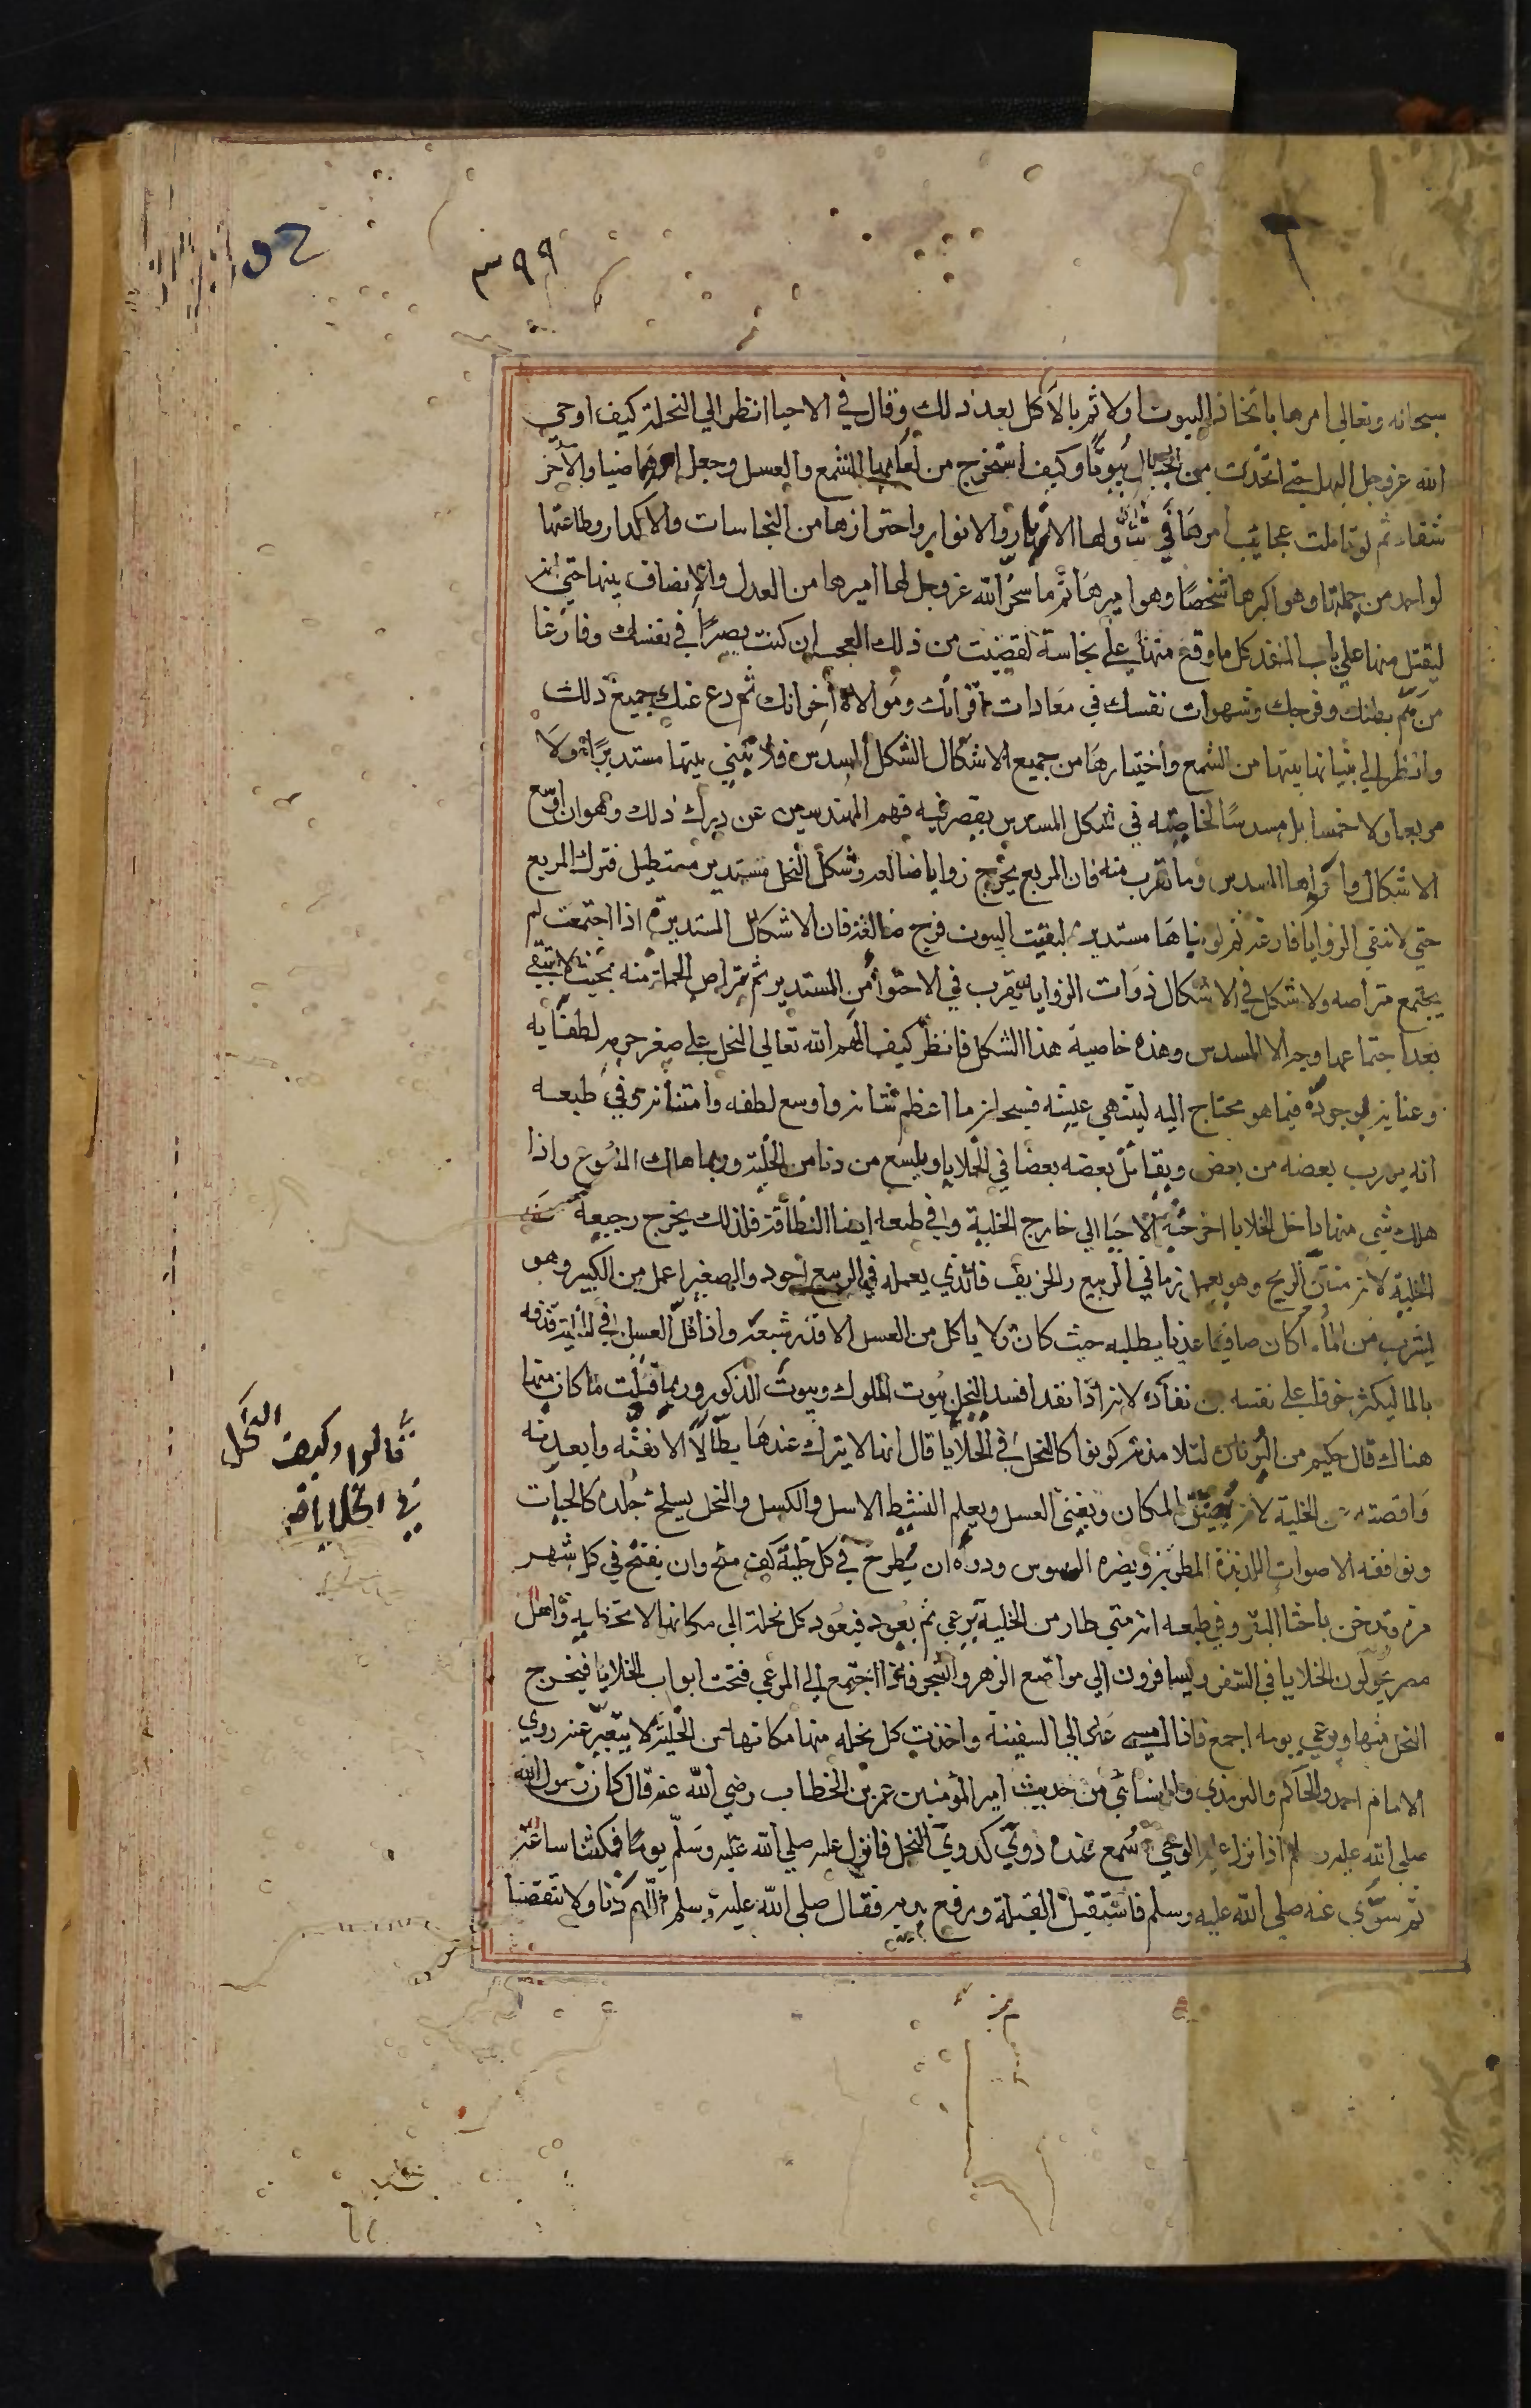 ٣٩٩
سبحانه وتعالي امرها باتخاذ البيوت اولا ثم بالاكل بعد ذلك وقال في الاحيا انظر الي النحلة كيف اوحي
الله عز وجل اليها حتي اتخذت من الجبال بُيوتًا وكيف استخرج من لعابها الشمع والعسل وجعل احدهما ضيا والآخر
شفاء ثم لو تاملت عجايب امرها في تناولها الازهار والانوار واحترازها من النجاسات والاكدار وطاعتها
لواحد من جملتها وهو اكبرها شخصًا وهو اميرها ثم ما سخر الله عز وجل لها اميرها من العدل والانصاف بينها حتي انه
ليقتل منها علي باب المنفذ كل ما وقع منها علي نجاسة لقضيت من ذلك العجب ان كنت بصيرًا في نفسك وفارغا
من هم بطنك وفرجك وشهوات نفسك في معادات اقرانك وموالاة اخوانك ثم دع عنك جميع ذلك
وانظر الي بنيانها بيتها من الشمع واختيارها من جميع الاشكال الشكل المسدس فلا تبني بيتها مستديرًا ولا
مربعا ولا خمسا بل مسدسًا لخاصية في شكل المسدس يقصر فيه فهم المهندسين عن درك ذلك وهو ان اوسع
الاشكال واحواها المسدس وما تقرب منه فان المربع يخرج زوايا ضائعة وشكل النحل مستدير مستطيل فترك المربع
حتي لا تبقي الزوايا فارغة ثم لو بناها مستديرة لبقيت البيوت فرج ضائعة فان الاشكال المستديرة اذا اجتمعت لم
يجتمع متراصه ولا شكل في الاشكال ذوات الزوايا يقرب في الاحتوا من المستدير ثم يتراص الجملة منه بحيث لا تبقي
بعد اجتماعها فرجه الا المسدس وهذه خاصية هذا الشكل فانظر كيف الهم الله تعالي النحل علي صغر جرمه لطفًا به
وعناية بوجوده فيما هو محتاج اليه ليتهني عيشه فسبحانه ما اعظم شانه واوسع لطفه وامتنانه وفي طبعه
انه يهرب بعضه من بعض ويقاتل بعضه بعضا في الخلايا ويلسع من دنا من الخلية وربما هلك الملسوع واذا
هلك شي منها داخل الخلايا اخرجته الاحيا الي خارج الخلية وفي طبعه ايضا النظافة فلذلك يخرج رجيعه من
الخلية لانه منتن الريح وهو يعمل زماني الربيع والخريف فالذي يعمله في الربيع اجود والصغير اعمل من الكبير وهو
يشرب من الماء ما كان صافيا عذبا يطلبه حيث كان ولا ياكل من العسل الا قدر شبعه واذا قل العسل في الخلية قذفه
بالما ليكثر خوفا علي نفسه من نفاده لانه اذا نفد افسد النحل بيوت الملوك وبيوت الذكور وربما قتلت ما كان منها
هناك قال حكيم من اليونان لتلامذته كونوا كالنحل في الخلايا قال انها لا يترك عندها بطّالًا الا نفته وابعدته
واقصته عن الخلية لانه يضيق المكان ويفني العسل ويعلم النشيط الاسل والكسل والنحل يسلخ جلده كالحيات
وتوافقه الاصوات اللذيذة المطربة ويضره السوس ودواه ان يطرح في كل خلية كف ملح وان يفتح في كل شهر
مرة وتدخن باخثا البقر وفي طبعه انه متي طار من الخلية يرعي ثم يعود فيعود كل نحلة الي مكانها لا تخطيه واهل
مصر يحولون الخلايا في السفن ويسافرون الي مواضع الزهر والشجر فاذا اجتمع في المرعي فتحت ابواب الخلايا فيخرج
النحل منها ويرعي يومه اجمع فاذا امسي عاد الي السفينة واخذت كل نحله منها مكانها من الخلية لا يتغير عنه روي
الامام احمد والحاكم والترمذي والنسائي من حديث امير المؤمنين عمر بن الخطاب رضي الله عنه قال كان رسول الله
صلي الله عليه وسلم اذا نزل عليه الوحي سُمع عنده دويّ كدويّ النحل فانزل عليه صلي الله عليه وسلّم يومًا فمكثنا ساعة
ثم سوّي عنه صلي الله عليه وسلم فاستقبل القبلة ورفع يديه فقال صلي الله عليه وسلم اللهم زدنا ولا تنقصنا
قالوا وكيف النحل
في الخلايا قال